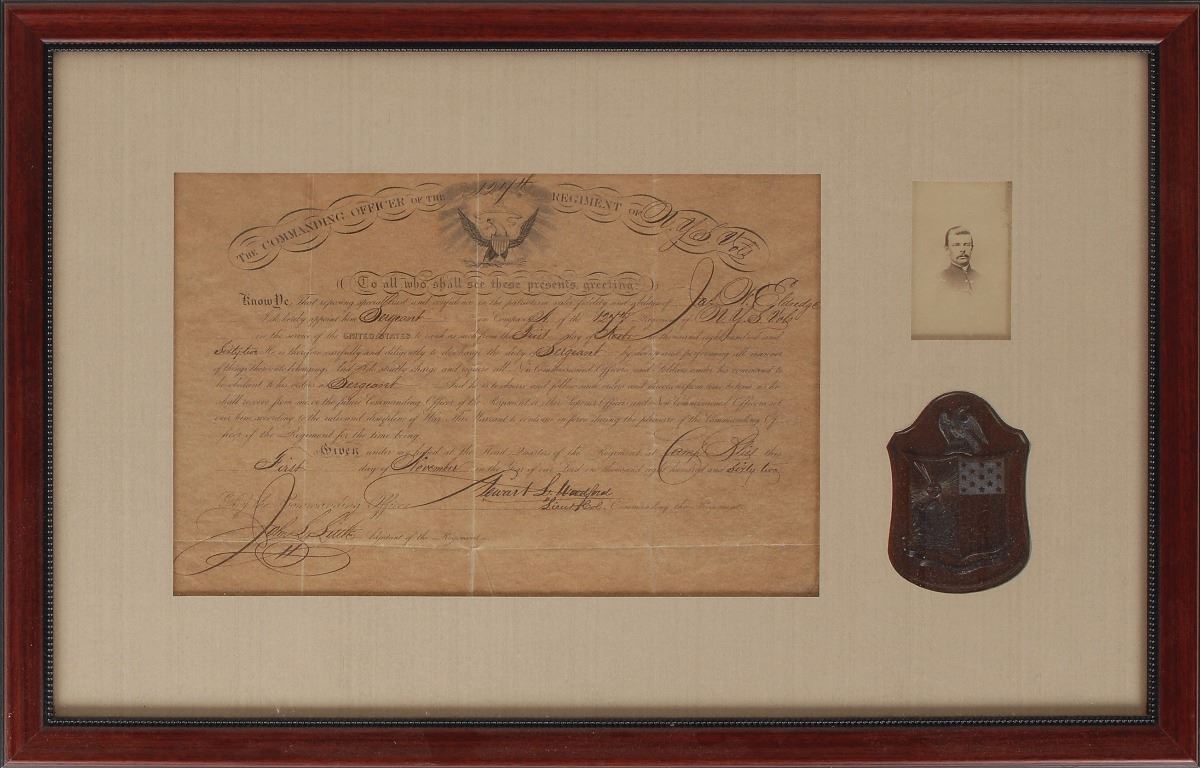 127th
THE COMMANDING OFFICER OF THE REGIMENT OF N.Y.S Vols
To all who shall see these presents, greeting:
Know Ye, That reposing special trust and confidence in the patriotism, valor, fidelity and abilities of
I do hereby appoint him Sergeant in Company of the 127th Regiment of N.Y.S Vols
in the service of the UNITED STATES to rank as such from the First day of one thousand eight hundred and
Sixty two He is therefore carefully and diligently to discharge the duty of Sergeant by doing and performing all manner
of things thereunto belonging. And I do strictly charge and require all Non-Commissioned Officers and Soldiers under his command to
be obedient to his orders as Sergeant And he is to observe and follow such orders and directions from time to time, as he
shall receive from me, or the future Commanding Officer of the Regiment, or other Superior Officers and Non-Commissioned Officers set
over him, according to the rules and discipline of War. This Warrant to continue in force during the pleasure of the Commanding Of-
ficer of the Regiment for the time being.
Given under my hand at the Head Quarters of the Regiment at Camp this
First day of November in the Year of our Lord one thousand eight hundred and Sixty two
By Commanding Officer
Stewart L. Woodford
Lieut Col. Commanding the Regiment.
Adjutant of the Regiment.